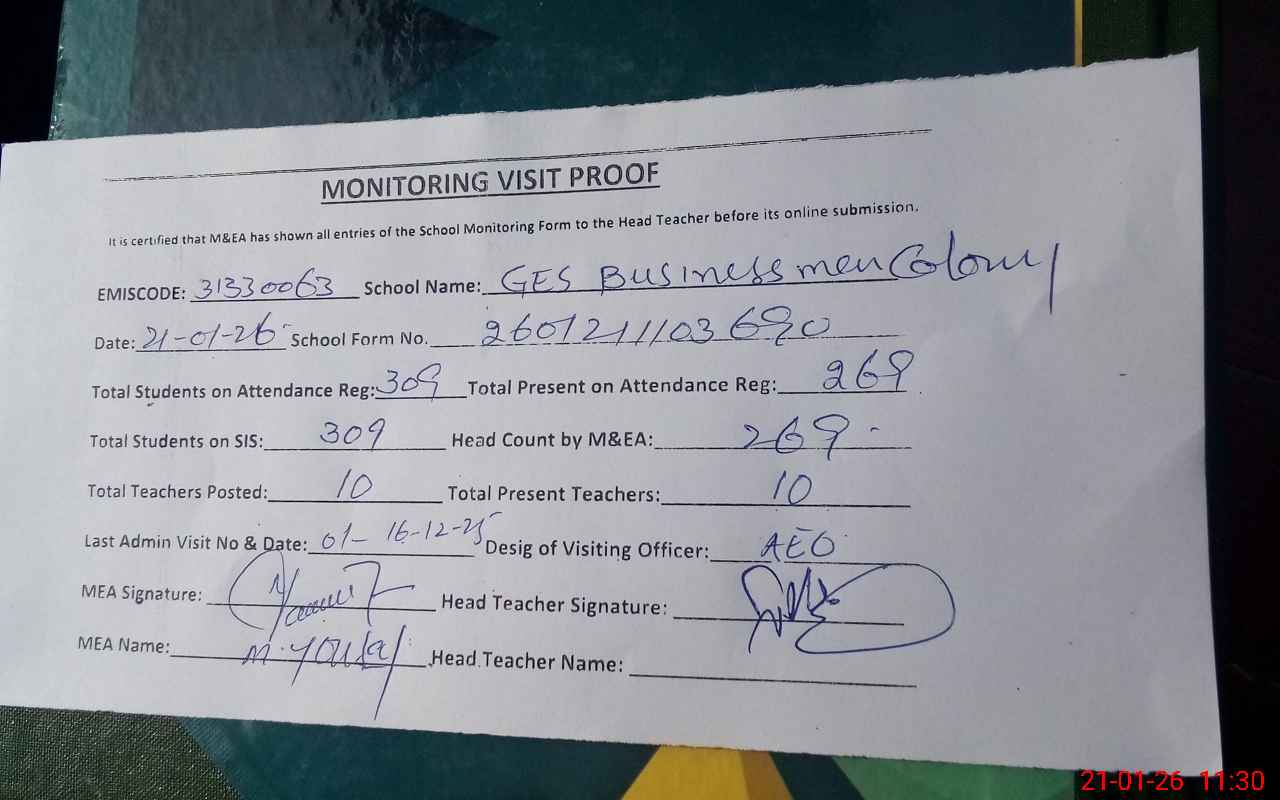 MONITORING VISIT PROOF
It is certified that M&EA has shown all entries of the School Monitoring Form to the Head Teacher before its online submission.
EMISCODE: 31330063 School Name: GES Businessmen Colony
Date: 21-01-26 School Form No. 2601211103690
Total Students on Attendance Reg: 309 Total Present on Attendance Reg: 269
Total Students on SIS: 309 Head Count by M&EA: 269
Total Teachers Posted: 10 Total Present Teachers: 10
Last Admin Visit No & Date: 01- 16-12-25 Desig of Visiting Officer: AEO
MEA Signature: Head Teacher Signature:
MEA Name: M. Yousaf Head Teacher Name:
21-01-26 11:30